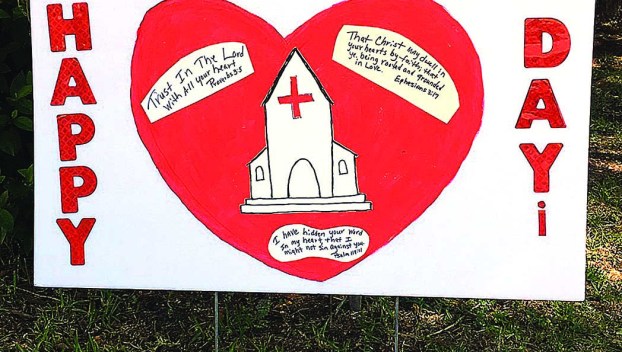 HAPPY
Trust In The Lord
With All your heart
Proverbs 3:5
That Christ may dwell in
your hearts by faith; that
ye, being rooted and grounded
in Love.
Ephesians 3:17
I have hidden your word
in my heart that I
might not sin against you.
Psalm 119:11
DAYi